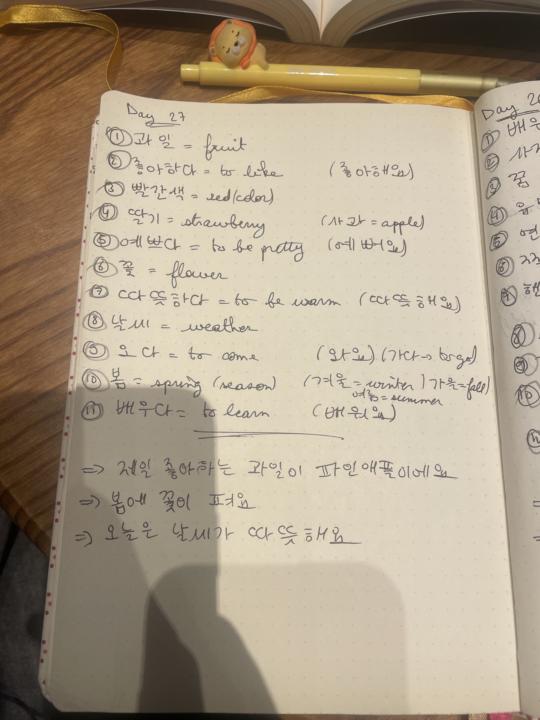 Day 27
① 과일 = fruit
② 좋아하다 = to like (좋아해요)
③ 빨간색 = red (color)
④ 딸기 = strawberry (사과 = apple)
⑤ 예쁘다 = to be pretty (예뻐요)
⑥ 꽃 = flower
⑦ 따뜻하다 = to be warm (따뜻해요)
⑧ 날씨 = weather
⑨ 오다 = to come (와요) (가다 → to go)
⑩ 봄 = spring (season) (겨울 = winter / 가을 = fall)
여름 = summer
⑪ 배우다 = to learn (배워요)
⇒ 제일 좋아하는 과일이 파인애플이에요
⇒ 봄에 꽃이 펴요
⇒ 오늘은 날씨가 따뜻해요
Day
① 배우
②
③ 꿈
④
⑤
⑥
⑦
⑧
⑨
⑩